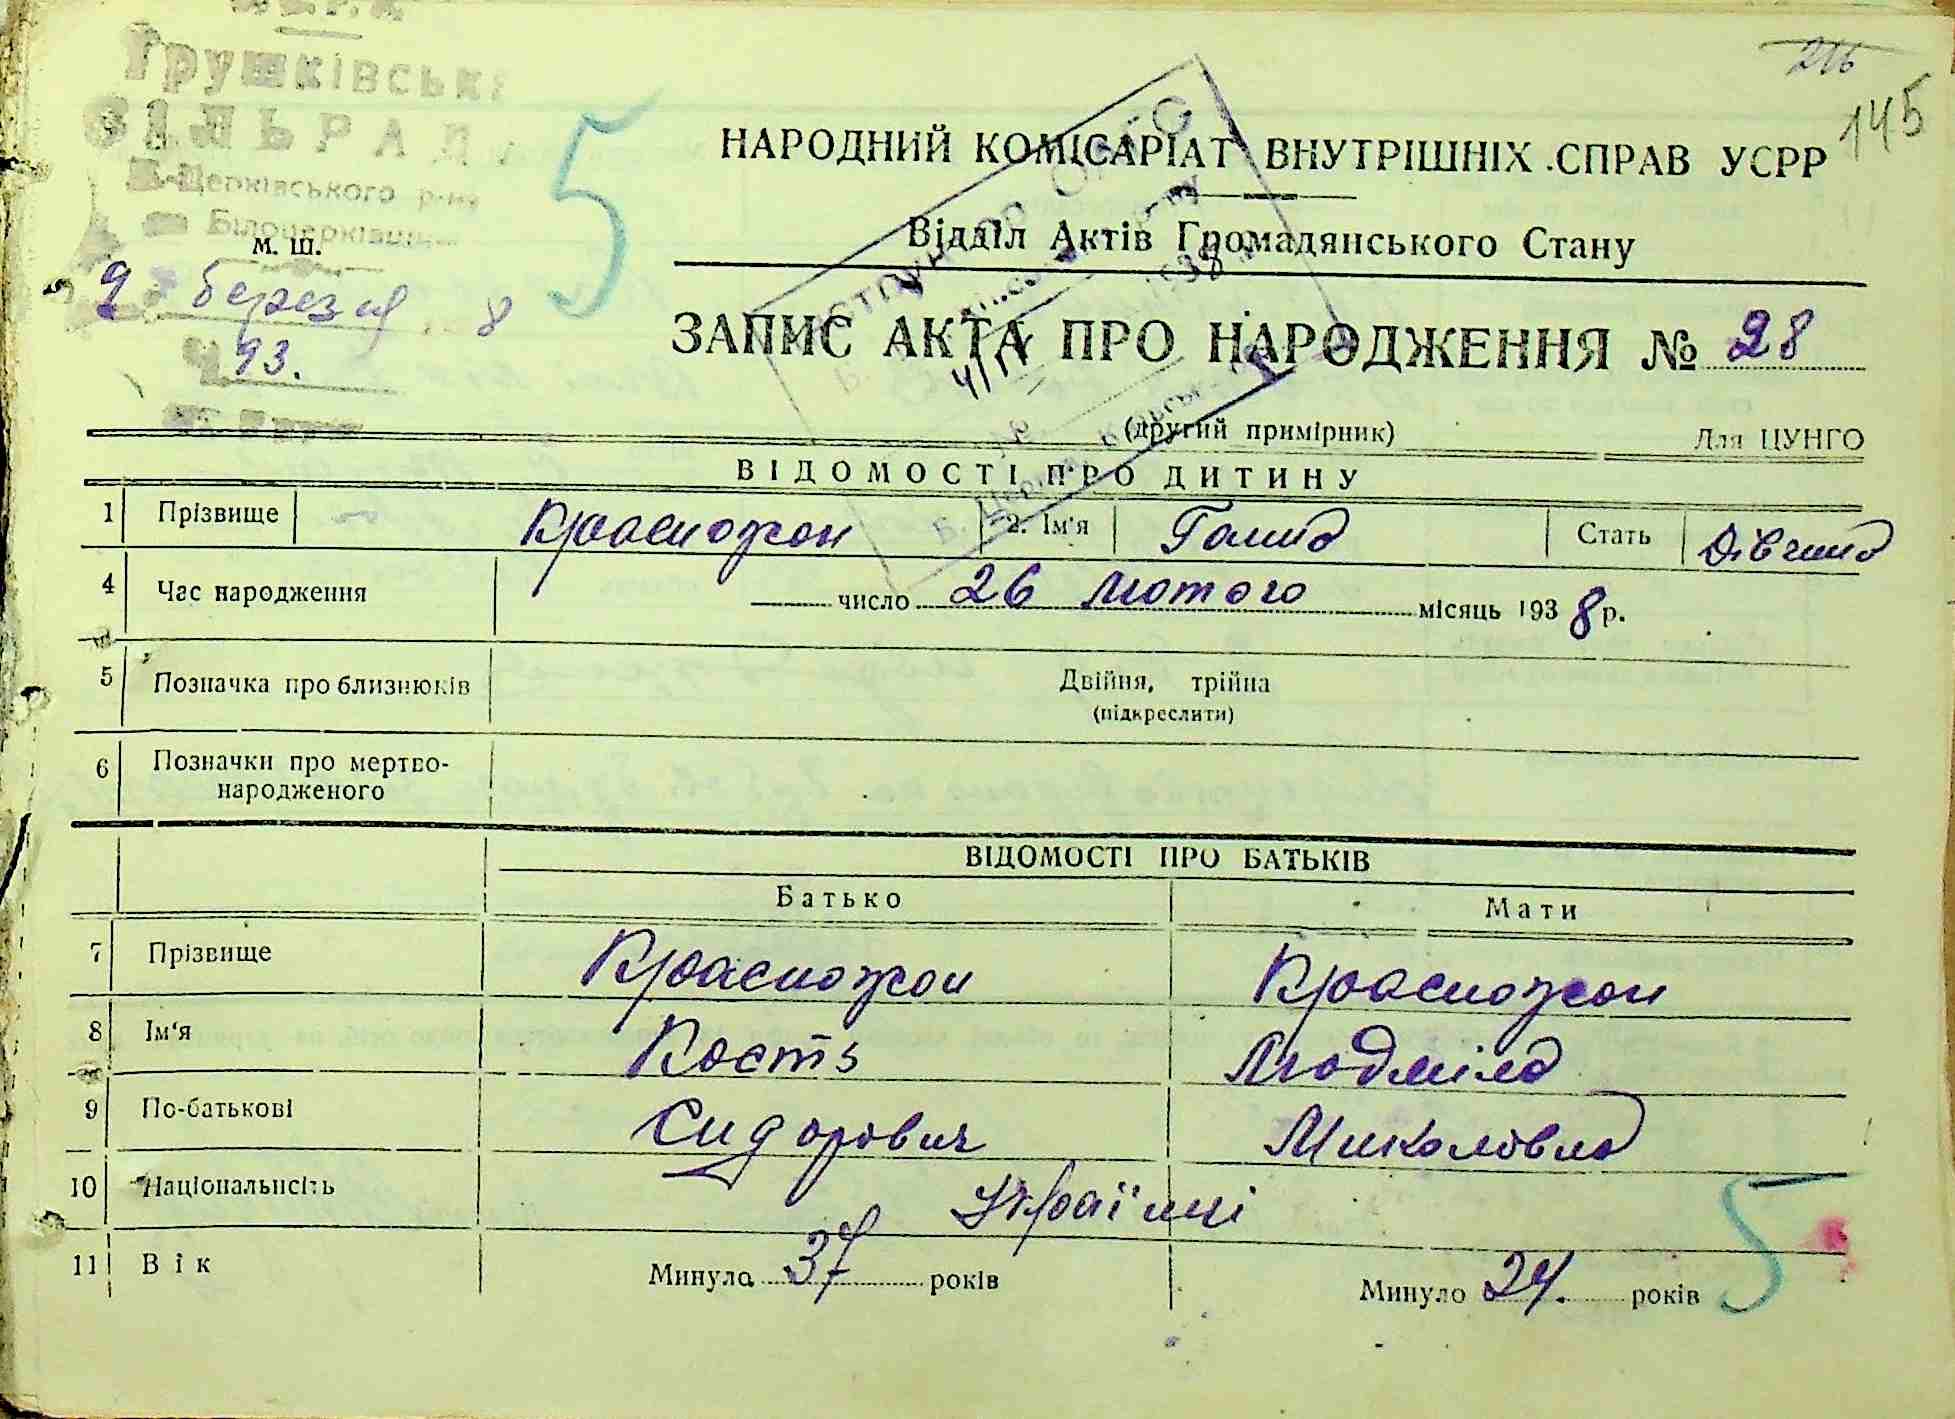 Грушківська
СІЛЬРАДА
Б-Церківського р-ну
Білоцерківщини
М. Ш.
9 березня 8
193.
5
216
145
НАРОДНИЙ КОМІСАРІАТ ВНУТРІШНІХ СПРАВ УСРР
Відділ Актів Громадянського Стану
ЗАПИС АКТА ПРО НАРОДЖЕННЯ № 28
(другий примірник) Для ЦУНГО
ВІДОМОСТІ ПРО ДИТИНУ
1 Прізвище Красножон 2. Ім'я Галина Стать Дівчина
4 Час народження число 26 лютого місяць 1938 р.
5 Позначка про близнюків Двійня, трійна
(підкреслити)
6 Позначки про мертво-
народженого
ВІДОМОСТІ ПРО БАТЬКІВ
Батько Мати
7 Прізвище Красножон Красножон
8 Ім'я Кость Людміла
9 По-батькові Сидорович Миколовна
10 Національність Українці
11 Вік Минуло 37 років Минуло 24. років
5